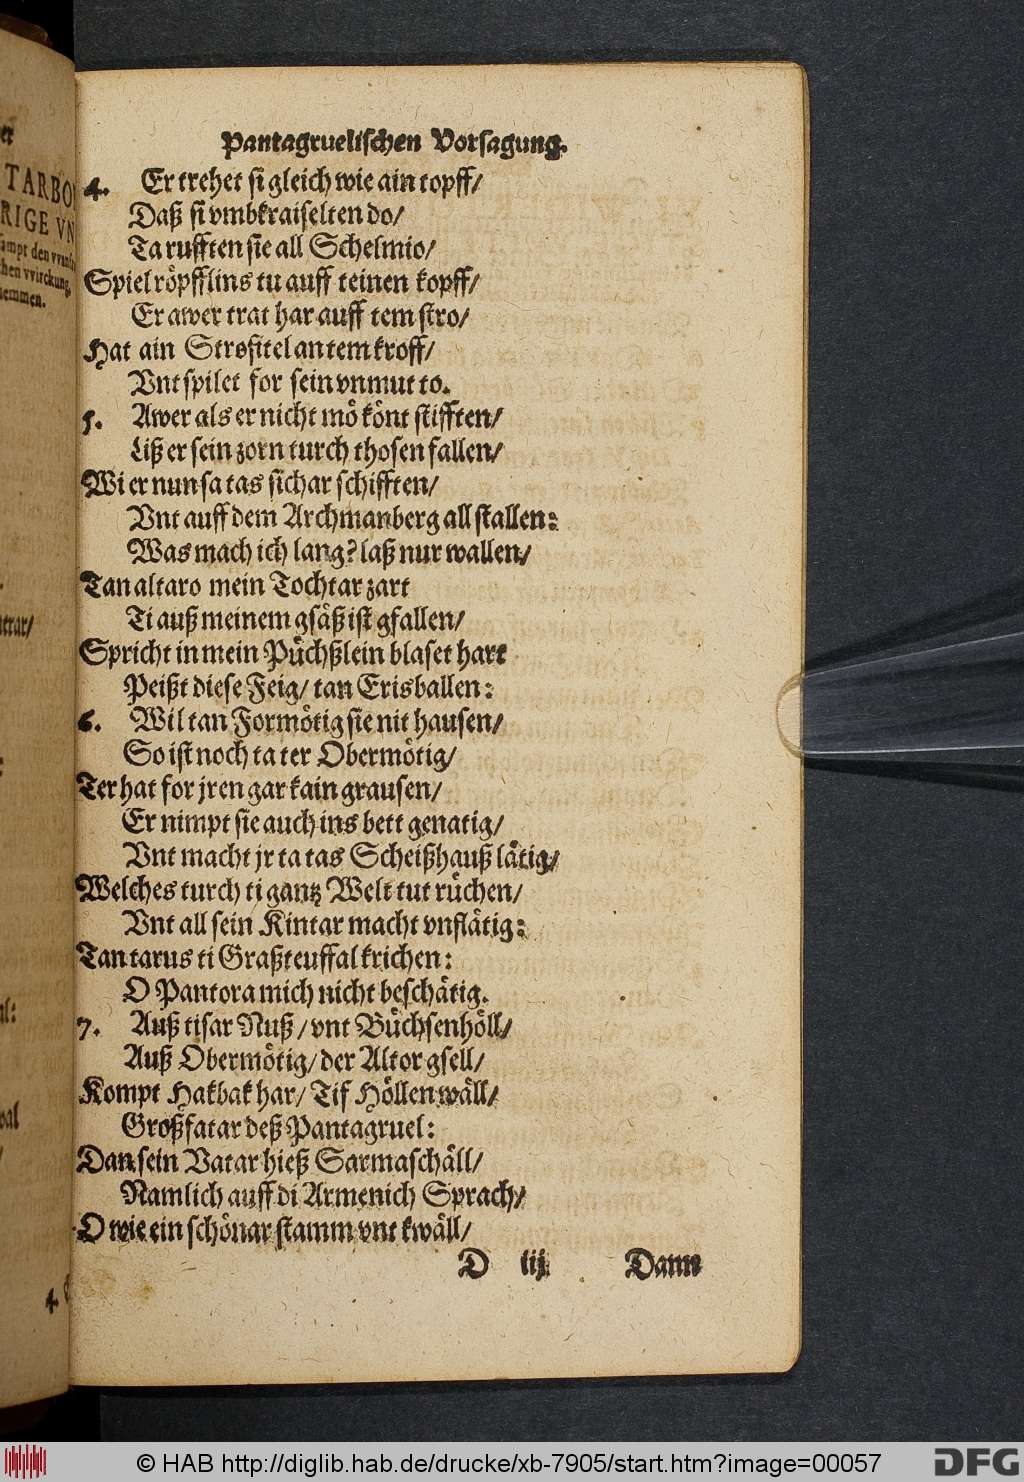 Pantagruelischen Vorsagung.
4. Er trehet si gleich wie ain topff/
Daß si vmbkraiselten do/
Ta rufften sie all Schelmio/
Spiel röpfflins tu auff teinen kopff/
Er awer trat har auff tem stro/
Hat ain Strositel an tem kroff/
Vnt spilet for sein vnmut to.
5. Awer als er nicht mö könt stifften/
Liß er sein zorn turch thosen fallen/
Wi er nun sa tas sich ar schifften/
Vnt auff dem Archmanberg all stallen:
Was mach ich lang? laß nur wallen/
Tan altaro mein Tochtar zart
Ti auß meinem gsäß ist gfallen/
Spricht in mein Püchßlein blaset hart
Peißt diese Feig/ tan Erisballen:
6. Wil tan Formötig sie nit hausen/
So ist noch ta ter Obermötig/
Ter hat for jren gar kain grausen/
Er nimpt sie auch ins bett genatig/
Vnt macht jr ta tas Scheißhauß lätig/
Welches turch ti gantz Welt tut rüchen/
Vnt all sein Kintar macht vnflätig:
Tan tarus ti Graßteuffal krichen:
O Pantora mich nicht beschätig.
7. Auß tisar Nuß/ vnt Büchsenhöll/
Auß Obermötig/ der Altor gsell/
Kompt Hakbak har/ Tif Höllenwäll/
Großfatar deß Pantagruel:
Dan sein Vatar hieß Sarmaschäll/
Namlich auff di Armenich Sprach/
O wie ein schönar stamm vnt kwäll/
D iij. Dann
er
TARBO
RIGE VN
ampt den
hen vvirckung,
nemmen.
4.
© HAB http://diglib.hab.de/drucke/xb-7905/start.htm?image=00057
DFG